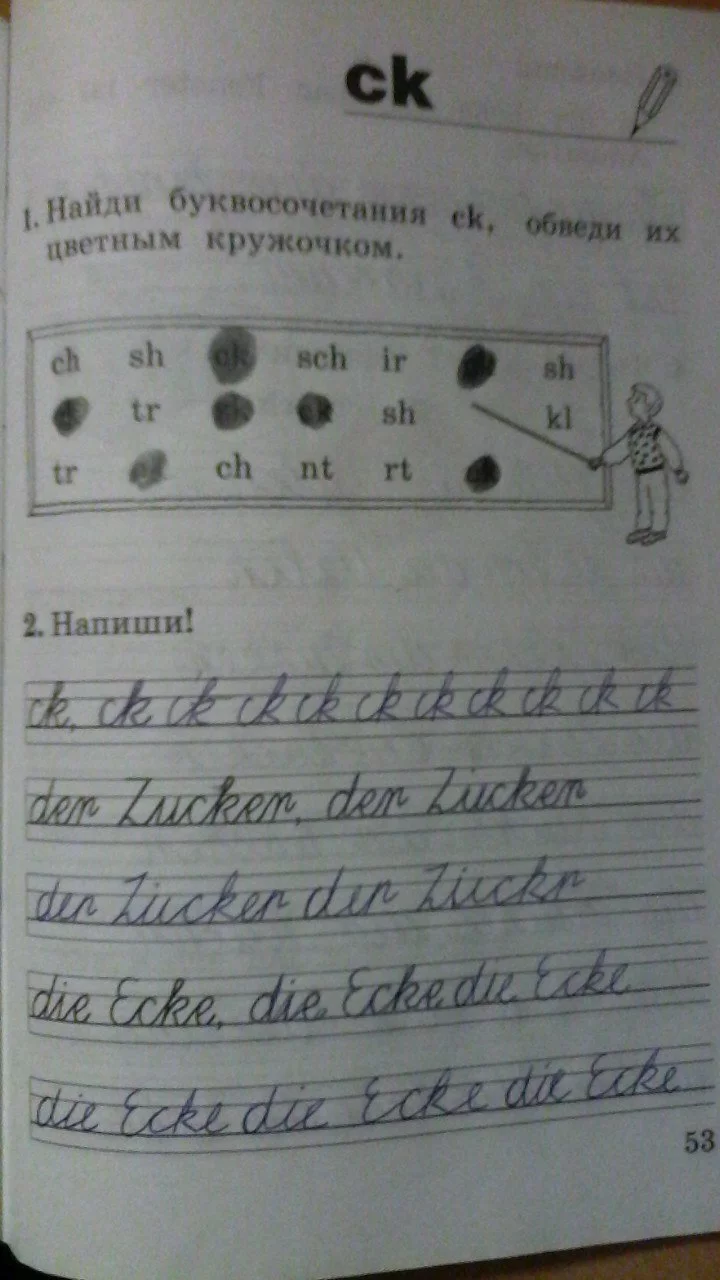 ck
1. Найди буквосочетания ck, обведи их
цветным кружочком.
ch sh ck sch ir sh
tr ck ck sh kl
tr ch nt rt ck
2. Напиши!
ck, ck ck ck ck ck ck ck ck ck ck
der Zucker, der Zucker
der Zucker der Zuckr
die Ecke, die Ecke die Ecke
die Ecke die Ecke die Ecke
53